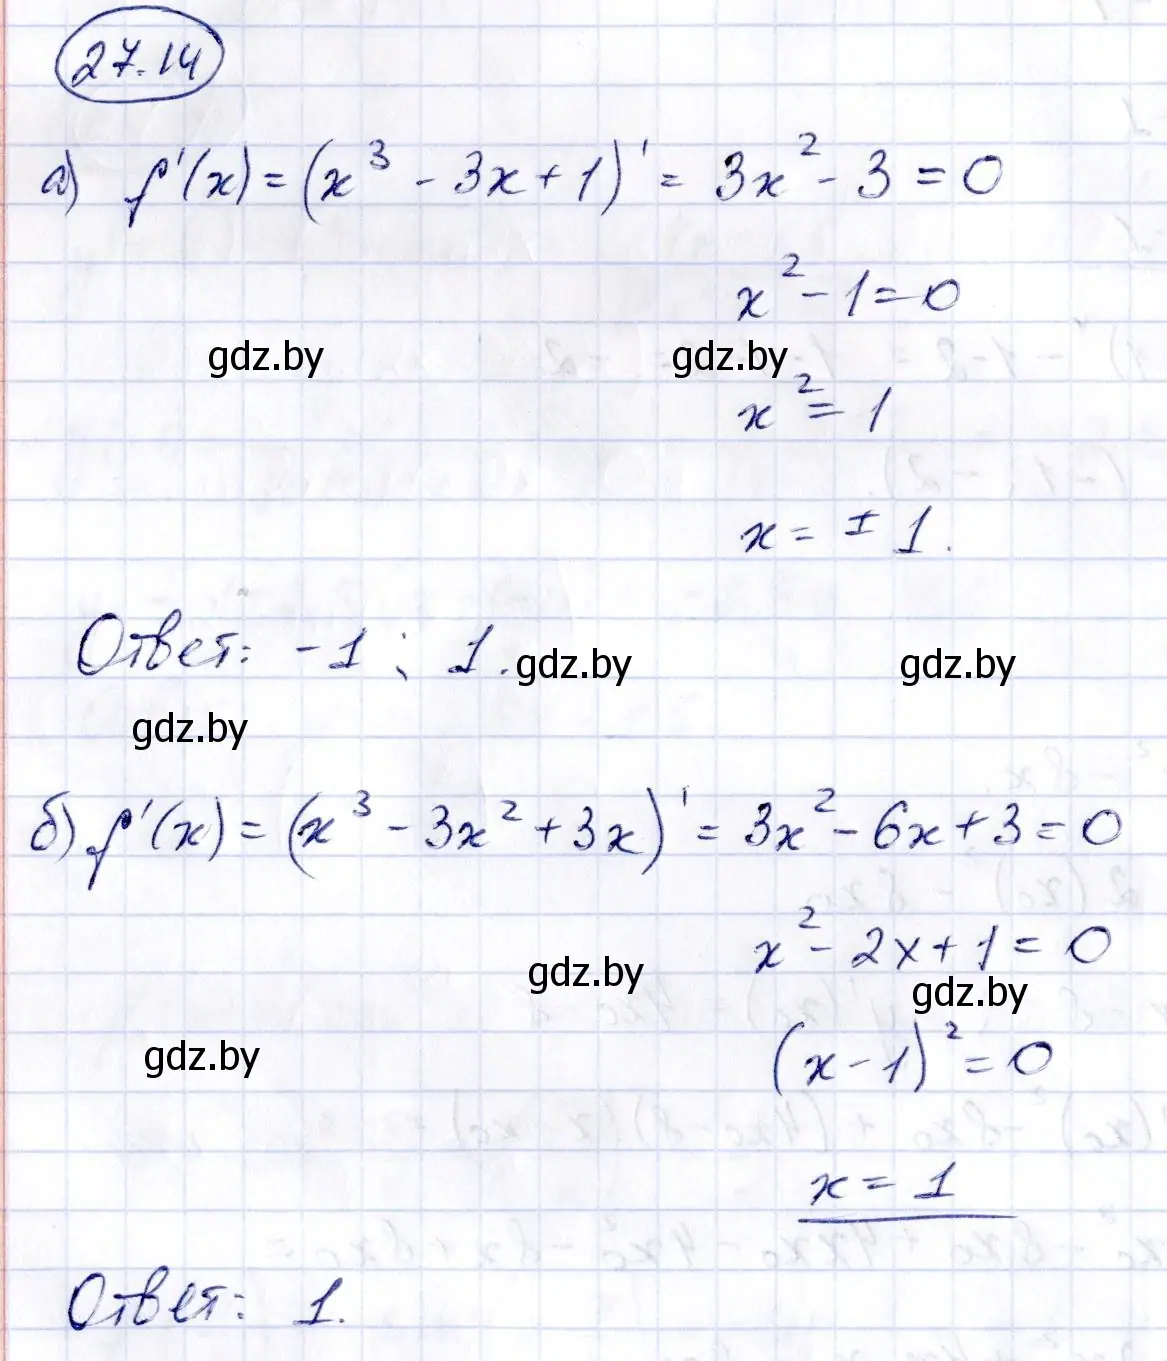 27.14
а) f'(x) = (x³ - 3x + 1)' = 3x² - 3 = 0
x² - 1 = 0
gdz.by gdz.by
x² = 1
x = ± 1.
Ответ: -1 ; 1. gdz.by gdz.by
gdz.by
б) f'(x) = (x³ - 3x² + 3x)' = 3x² - 6x + 3 = 0
x² - 2x + 1 = 0
gdz.by gdz.by
gdz.by (x - 1)² = 0
x = 1
Ответ: 1.